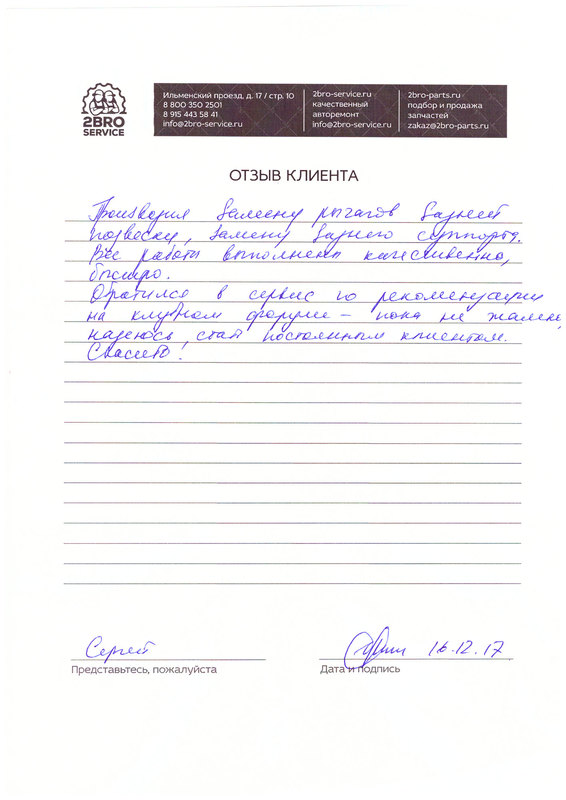 2BRO
SERVICE
Ильменский проезд, д. 17 / стр. 10
8 800 350 2501
8 915 443 58 41
info@2bro-service.ru
2bro-service.ru
качественный
авторемонт
info@2bro-service.ru
2bro-parts.ru
подбор и продажа
запчастей
zakaz@2bro-parts.ru
ОТЗЫВ КЛИЕНТА
Производил замену рычагов задней
подвески, замену заднего суппорта.
Все работы выполнены качественно,
быстро.
Обратился в сервис по рекомендации
на клубном форуме – пока не жалею,
надеюсь, стать постоянным клиентом.
Спасибо!
Сергей
Представьтесь, пожалуйста
16.12.17
Дата и подпись